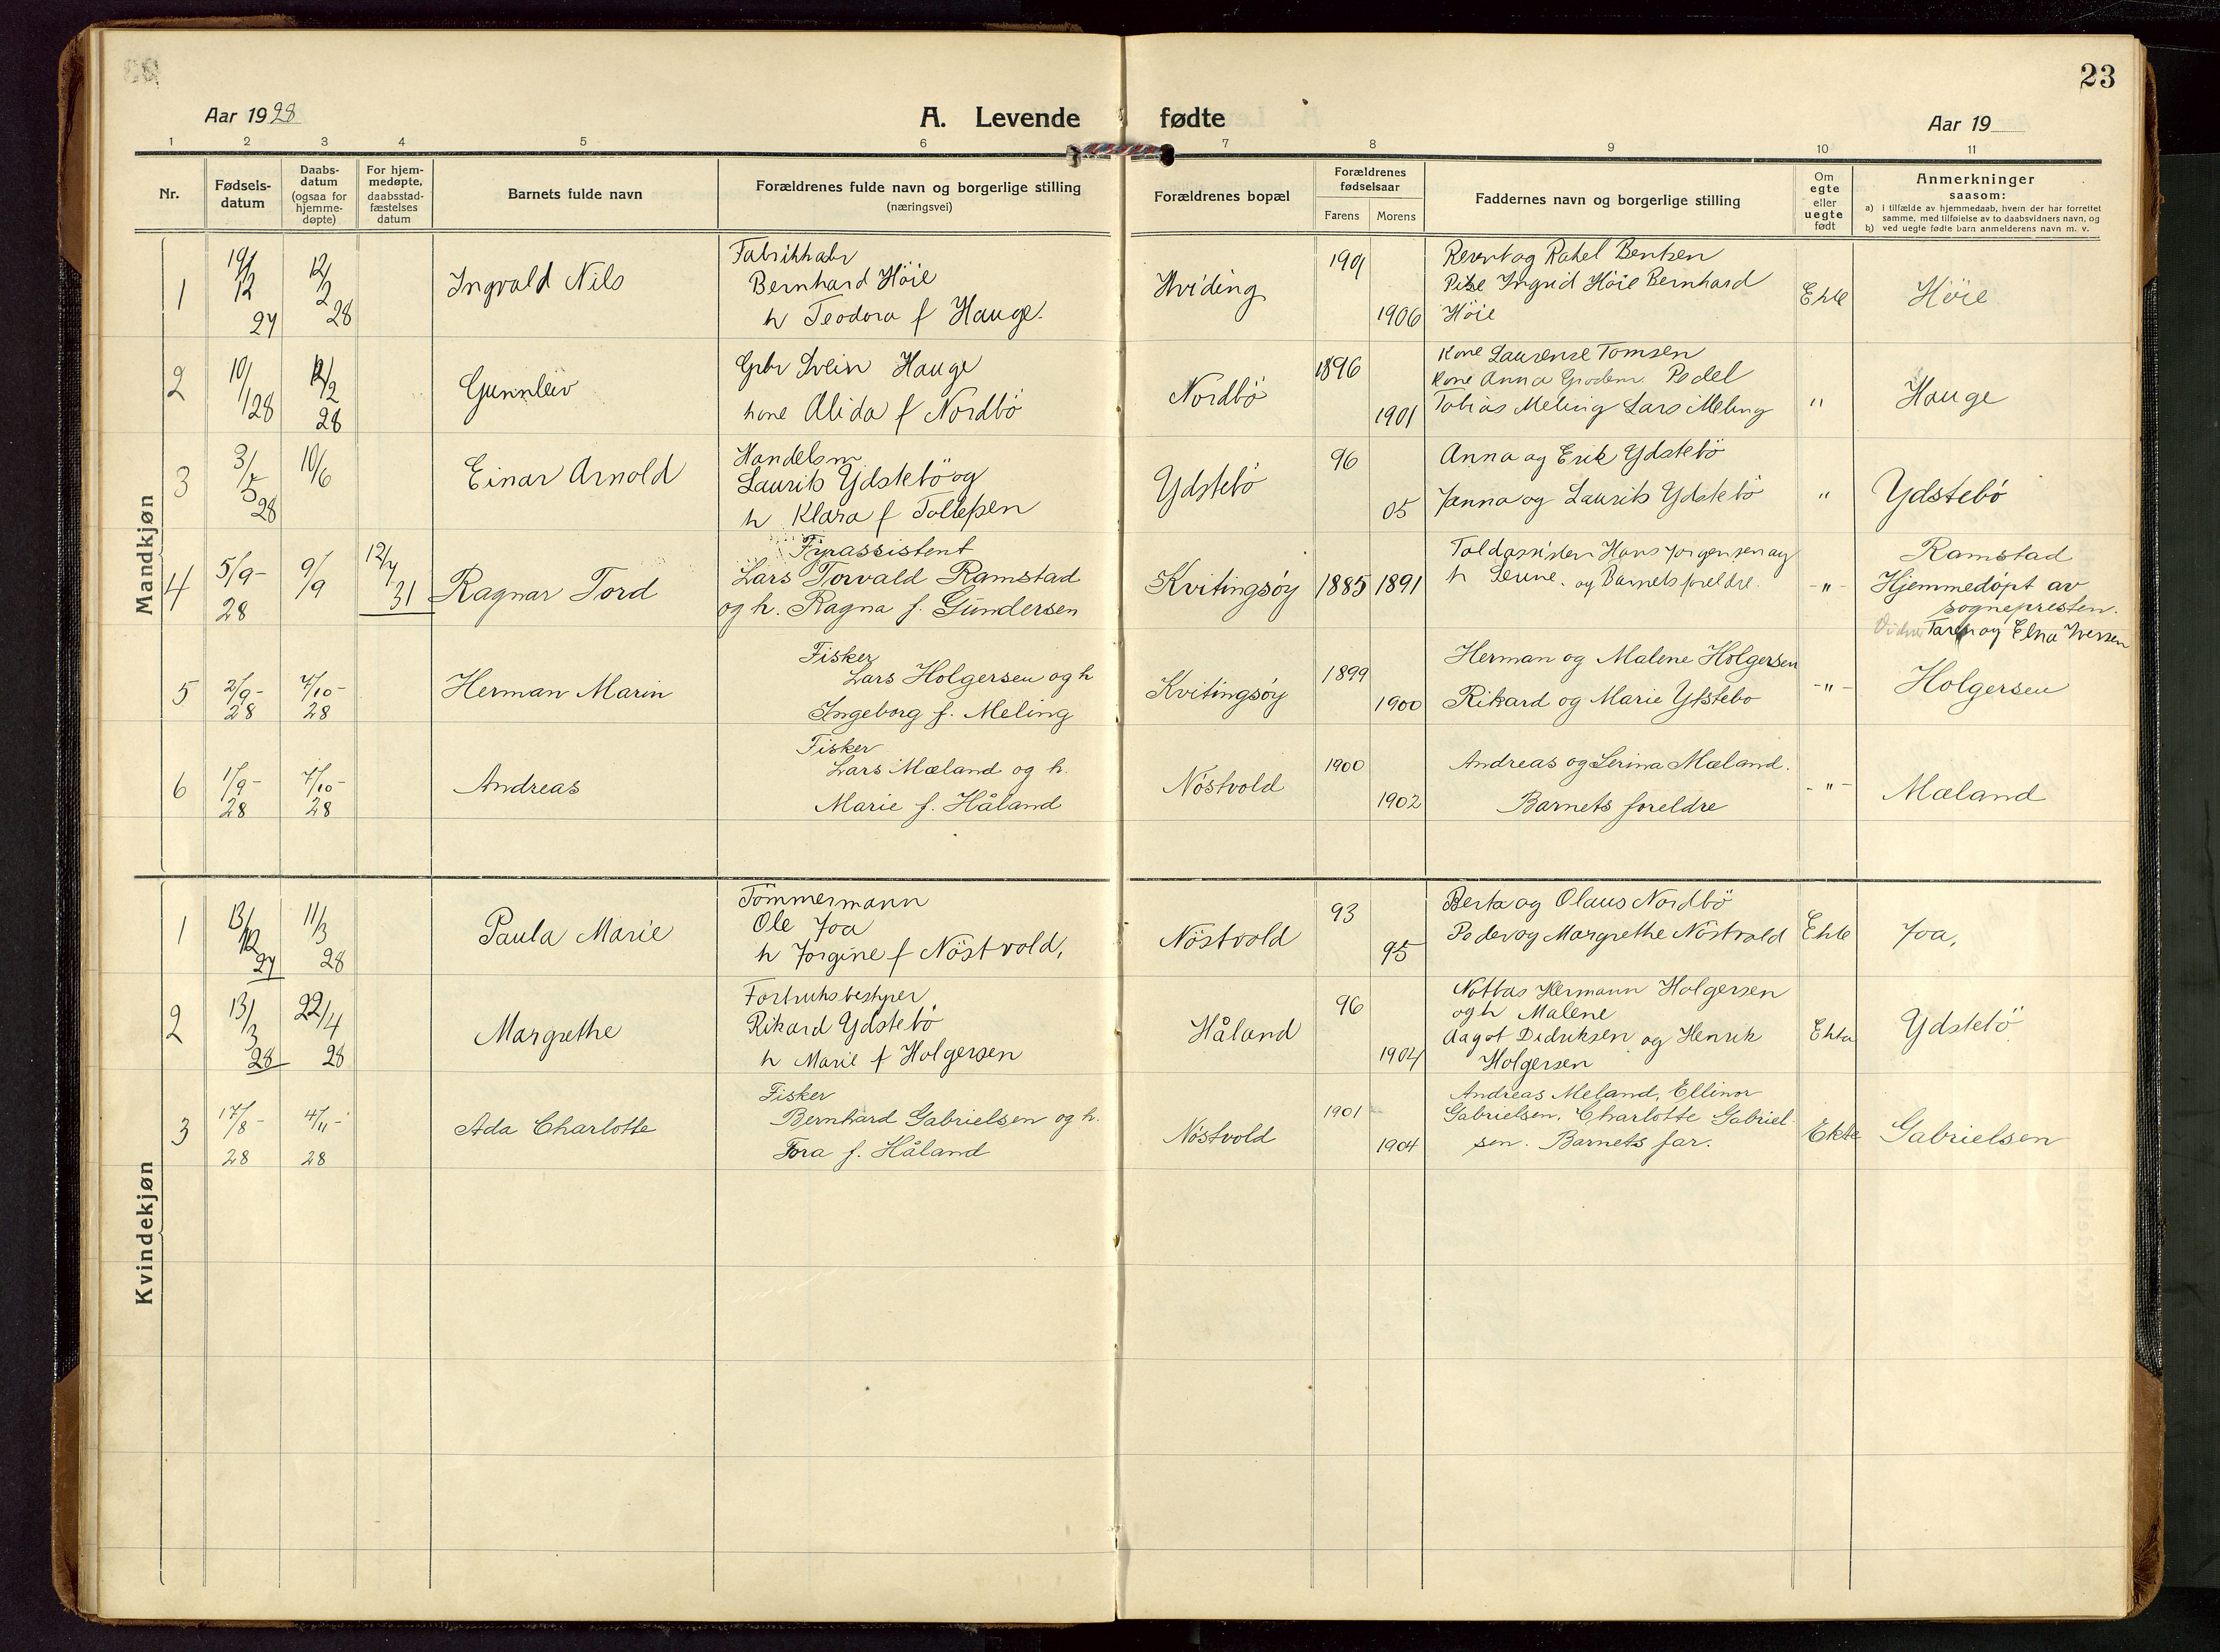 23
Aar 1928
A. Levende fødte
Aar 19
1 2 3 4 5 6 7 8 9 10 11
Nr.
Fødsels-
datum
Daabs-
datum
(ogsaa for
hjemme-
døpte)
For hjem-
medøpte,
daabsstad-
fæstelses
datum
Barnets fulde navn
Forældrenes fulde navn og borgerlige stilling
(næringsvei)
Forældrenes bopæl
Forældrenes
fødselsaar
Farens Morens
Faddernes navn og borgerlige stilling
Om
egte
eller
uegte
født
Anmerkninger
saasom:
a) i tilfælde av hjemmedaab, hvem der har forrettet
samme, med tilføielse av to daabsvidners navn, og
b) ved uegte fødte barn anmelderens navn m. v.
Mandkjøn
1
19/12 27
12/2 28
Ingvald Nils
Bernhard Höie
h Teodora f Hauge.
Hviding
1901
1906
og Rakel Bentsen
Pike Ingrid Höie Bernhard
Höie
Ekte
Höie
2
10/1 28
12/2 28
Gunnleiv
Gbr Svein Hauge
kone Alida f Nordbö
Nordbö
1896
1901
Kone Laurense Tomsen
Kone Anna Grodem. Podel
Tobias Meling Lars Meling
"
Hauge
3
3/5 28
10/6
Einar Arnold
Handelsm
Laurits Ydstebö og
h Klara f Tollefsen
Ydstebö
96
05
Anna og Erik Ydstebö
Janna og Laurits Ydstebö
"
Ydstebö
4
5/9- 28
9/9
12/7 31
Ragnar Tord
Fyrassistent
Lars Torvald Ramstad
og h. Ragna f. Gundersen
Kvitingsøy
1885 1891
Hans Jorgensen og
h og Barnets foreldre.
-"-
Ramstad
Hjemmedøpt av
sognepresten.
og Elna Iversen
5
2/9- 28
7/10- 28
Herman Marin
Fisker
Lars Holgersen og h
Ingeborg f. Meling
Kvitingsøy
1899
1900
Herman og Malene Holgersen
Rikard og Marie Ydstebo
-"-
Holgersen
6
1/9- 28
7/10- 28
Andreas
Fisker
Lars Mæland og h.
Marie f. Håland
Nøstvold
1900
1902
Andreas og Serina Mæland.
Barnets foreldre
-"-
Mæland
Kvindekjøn
1
13/12 27
11/3 28
Paula Marie
Tömmermann
Ole Joa
h Jorgine f Nöstvold,
Nöstvold
93
95
Berta og Olaus Nordbö
Peder og Margrethe Nöstvold
Ekte
Joa,
2
13/3 28
22/4 28
Margrethe
Forbruksbestyrer
Rikard Ydstebö
h Marie f Holgersen
Håland
96
1904
Hermann Holgersen
og h Malene
Aagot Didriksen og Henrik
Holgersen
Ekte
Ydstebö
3
17/8- 28
4/11- 28
Ada Charlotte
Fisker
Bernhard Gabrielsen og h.
Tora f. Håland
Nöstvold
1901
1904
Andreas Meland, Ellinor
Gabrielsen, Charlotte Gabriel-
sen. Barnets far.
Ekte
Gabrielsen